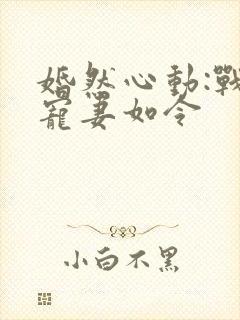 婚然心動:戰
寵妻如令
小白不黑